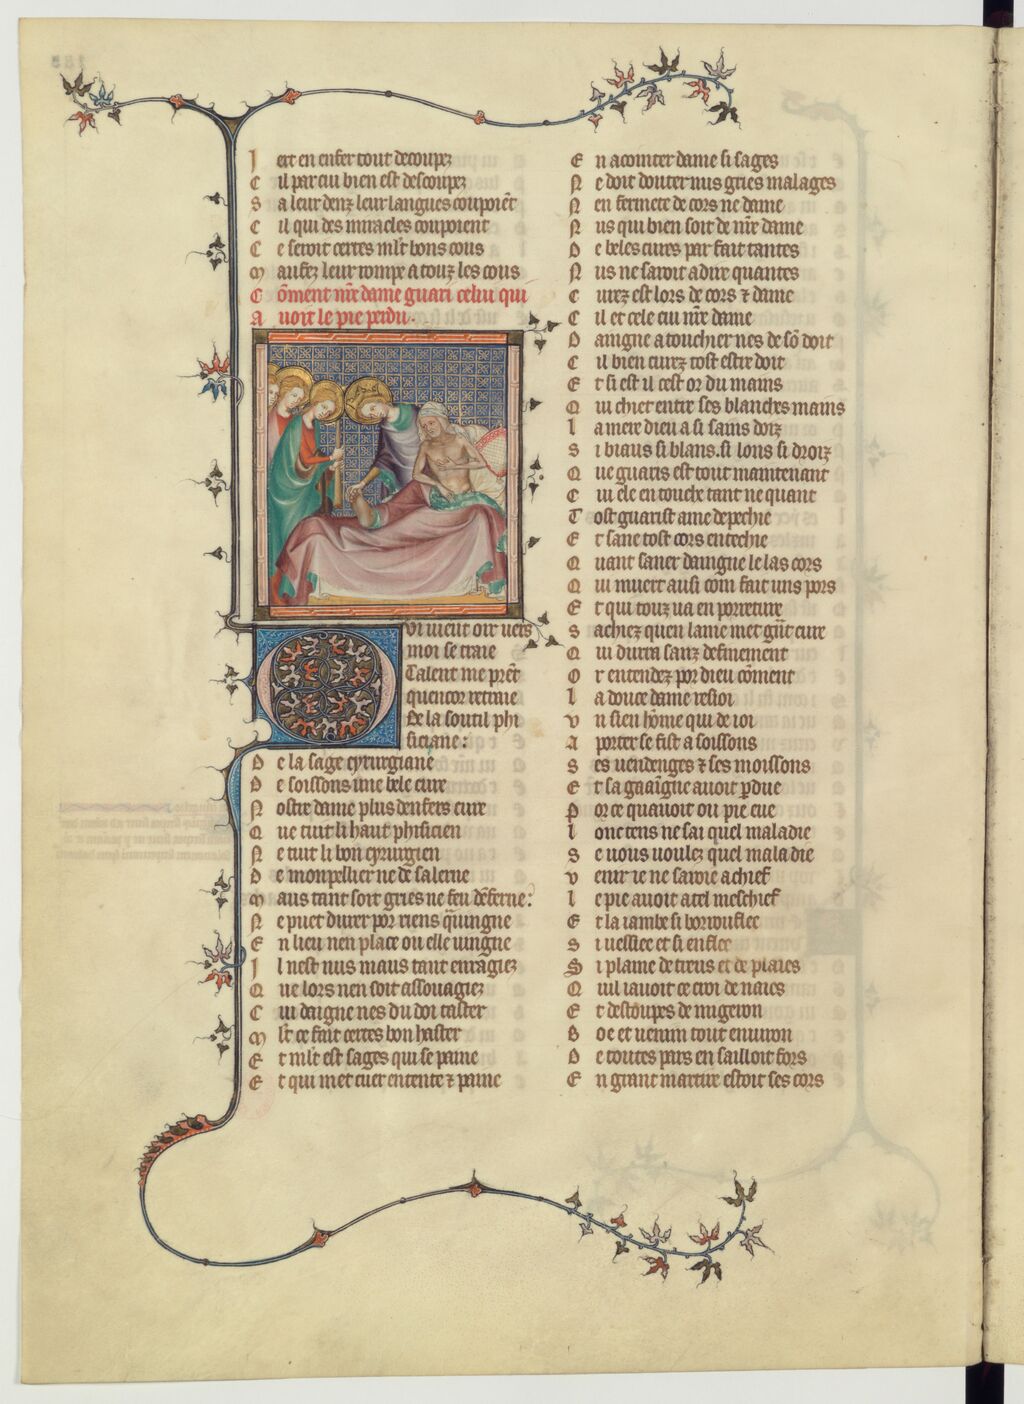 I ert en enfer tout decoupez
C il par cui bien est descoupez
S a leur denz leur langues coupoiẽt
C il qui des miracles coupoient
C e seroit certes ml't bons cous
M aufez leur rompe a touz les cous
C õment nr̃e dame guari celui qui
A uoit le pie perdu.
Qui uieut oir uers
moi se traie
Talent me prẽt
quencor retraie
De la soutil phi
siciane:
D e la sage cyrurgiane
D e soissons une bele cure
N ostre dame plus denfers cure
Q ue tuit li haut phisicien
N e tuit li bon cyrurgien
D e monpellier ne de salerne
M aus tant soit gries ne feu dẽferne:
N e puet durer por riens q̃uingne
E n lieu nen place ou elle uingne
I l nest nus maus tant enragiez
Q ue lors nen soit assouagiez
C ui daigne nes du doi taster
M l't ce fait certes bon haster
E t ml't est sages qui se paine
E t qui met cuer entente ⁊ paine
E n acointer dame si sages
N e doit douter nus gries malages
N en fermete de cors ne dame
N us qui bien soit de nr̃e dame
D e beles cures par fait tantes
N us ne saroit a dire quantes
C urez est lors de cors ⁊ dame
C il et cele cui nr̃e dame
D aingne a touchier nes de sõ doit
C il bien curez tost estre doit
E t si est il cest or du mains
Q ui chiet entre ses blanches mains
L a mere dieu a si sains doiz
S i biaus si blans. si lons si droiz
Q ue guaris est tout maintenant
C ui ele en touche tant ne quant
T ost guarist ame depechie
E t sane tost cors entechie
Q uant saner daingne le las cors
Q ui muert ausi com fait uns pors
E t qui touz ua en porreture
S achiez quen lame met gñt cure
Q ui durra sanz definement
O r entendez por dieu cõment
L a douce dame resioi
U n sien hõme qui de ioi
A porter se fist a soissons
S es uendenges ⁊ ses moissons
E t sa gaaigne auoit p̱due
P or ce quauoit ou pie eue
L onc tens ne sai quel maladie
S e uous uoulez quel maladie
U enir ie ne saroie a chief
L e pie auoit a tel meschief
E t la iambe si borsouflee
S i uessiee et si enflee
S i plaine de treus et de plaies
Q uil iauoit ce croi de naies
E t destoupes de mugeron
B oe et uenim tout enuiron
D e toutes pars en sailloit fors
E n grant martire estoit ses cors